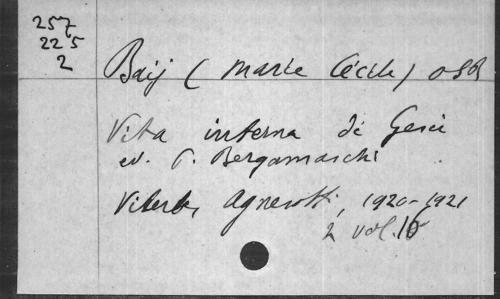 257
225
2
Baij (Marie Cécile) OSB
Vita interna di Gesù
ed. P. Bergamaschi
Viterbe, Agnesotti, 1920-1921
2 vol. 16